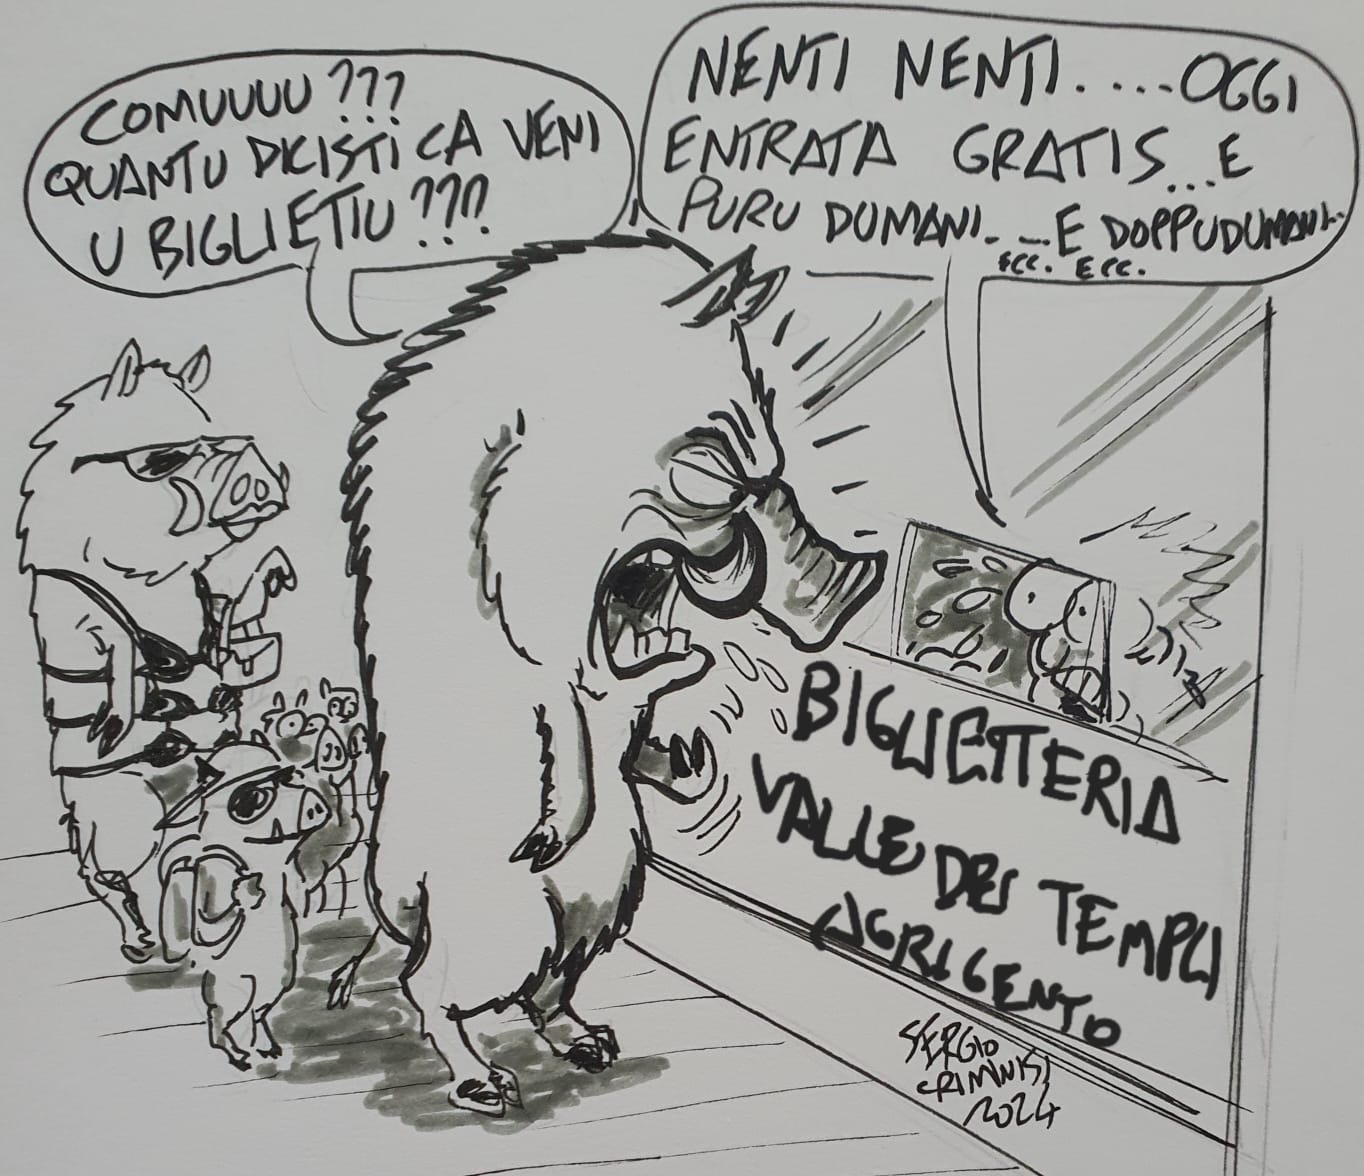 COMUUUU ???
QUANTU DICISTI CA VENI
U BIGLIETTU ???
NENTI NENTI.....OGGI
ENTRATA GRATIS...E
PURU DUMANI.....E DOPPUDUMANI..
ECC. ECC.
BIGLIETTERIA
VALLE DEI TEMPLI
AGRIGENTO
SERGIO
CRIMINISI
2024